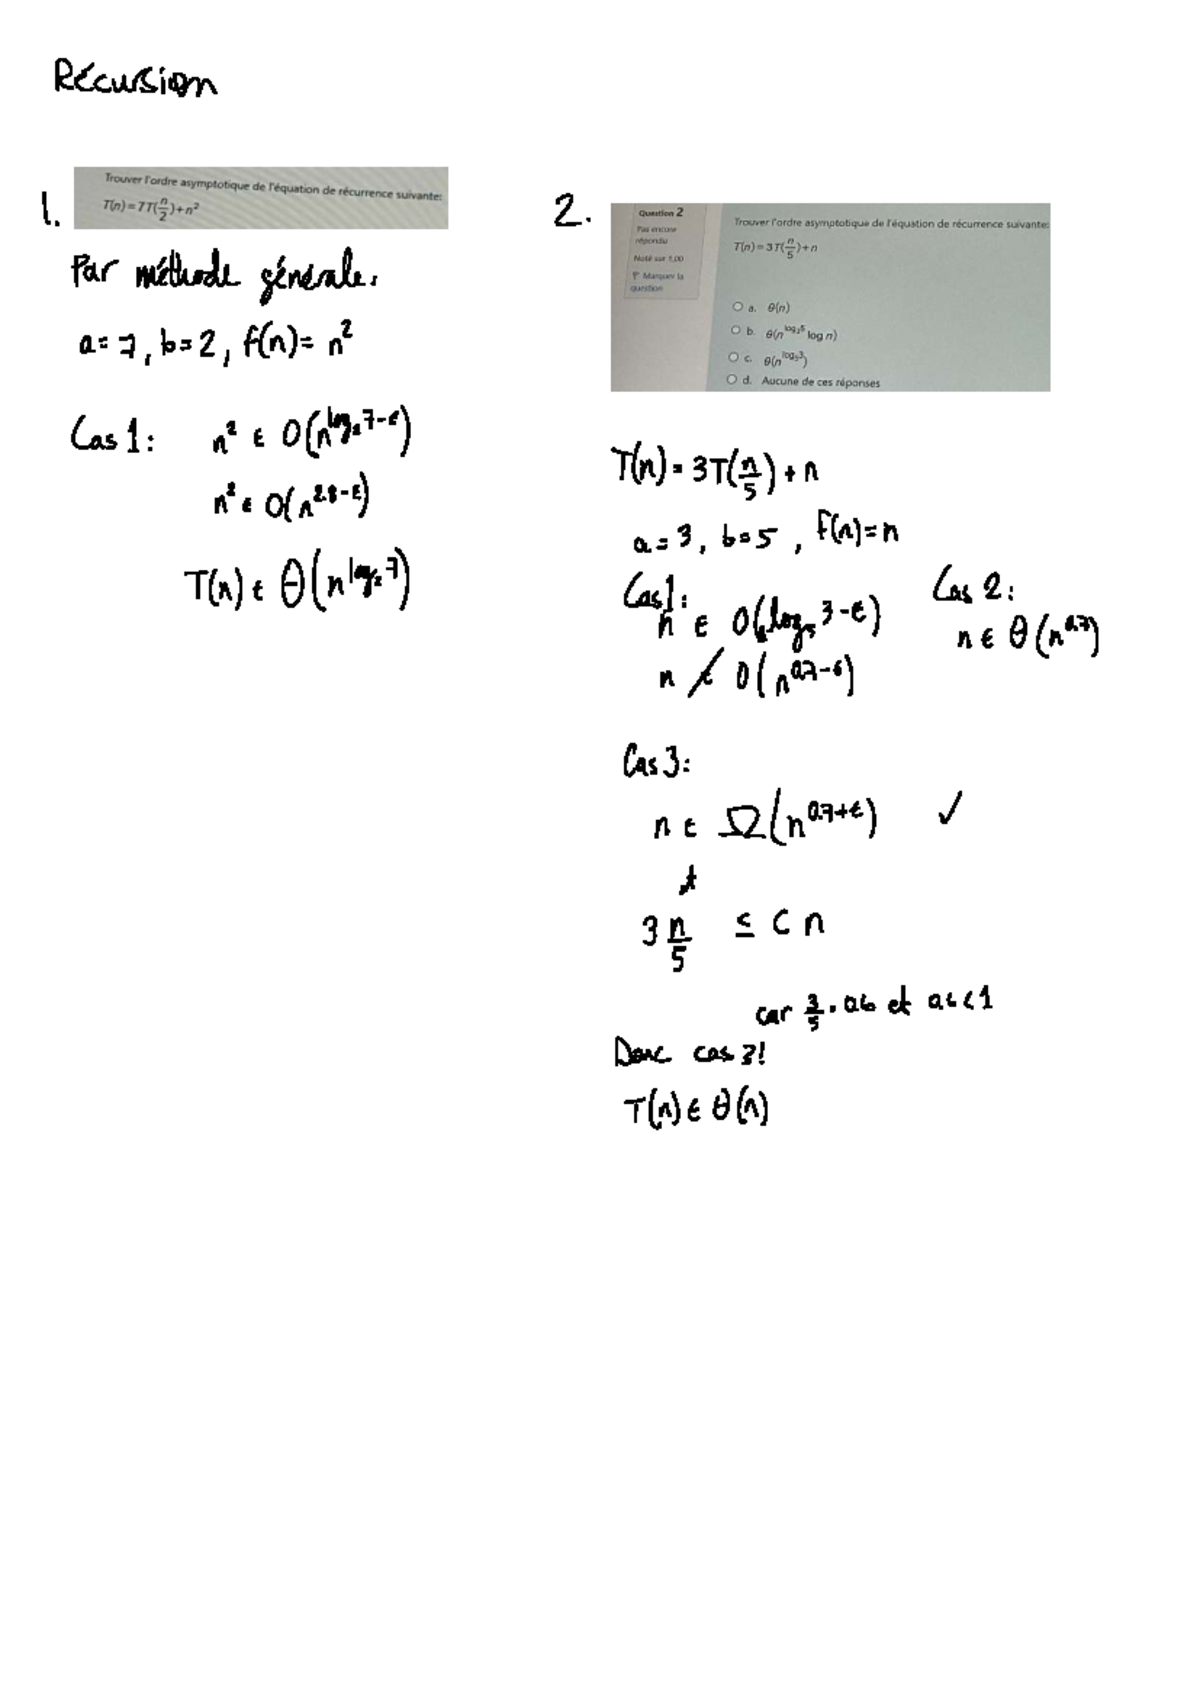 Récursion
1.
Trouver l'ordre asymptotique de l'équation de récurrence suivante:
T(n)=7T(n/2)+n²
Par méthode générale:
a=7, b=2, f(n)= n²
Cas 1: n² ∈ O(n^(log₂7-ε))
n² ∈ O(n^(2.8-ε))
T(n) ∈ Θ(n^(log₂7))
2.
Question 2
Pas encore
répondu
Noté sur 1,00
Marquer la
question
Trouver l'ordre asymptotique de l'équation de récurrence suivante:
T(n)=3T(n/5)+n
a. θ(n)
b. θ(n^(log₃5) log n)
c. θ(n^(log₅3))
d. Aucune de ces réponses
T(n) = 3T(n/5) + n
a=3, b=5, f(n)=n
Cas 1:
n ∈ O(n^(log₅3-ε))
n ∉ O(n^(0.7-ε))
Cas 2:
n ∈ Θ(n^0.7)
Cas 3:
n ∈ Ω(n^(0.7+ε)) ✓
3 n/5 ≤ C n
car 3/5 = 0.6 et 0.6 < 1
Donc cas 3!
T(n) ∈ Θ(n)